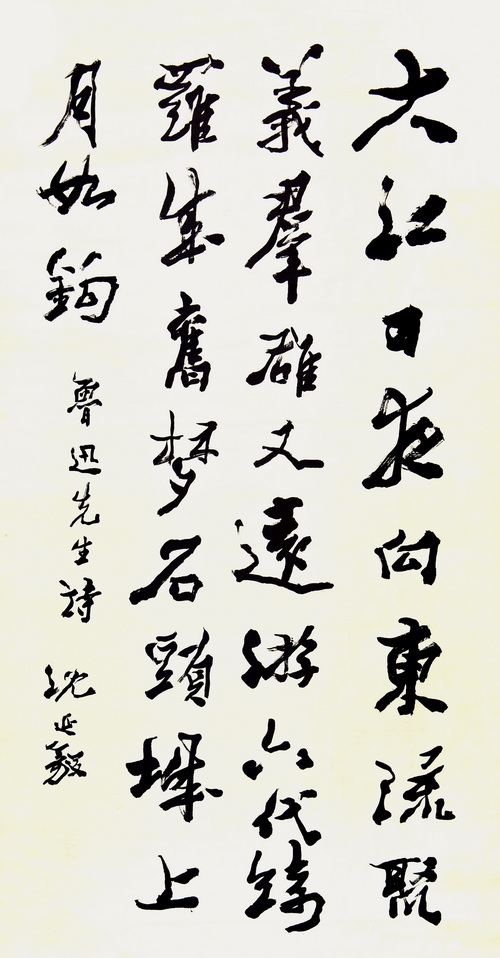 大江日夜向東流聚
義羣雄又遠游六代綺
羅成舊梦石頭城上
月如鉤
魯迅先生詩 沈延毅